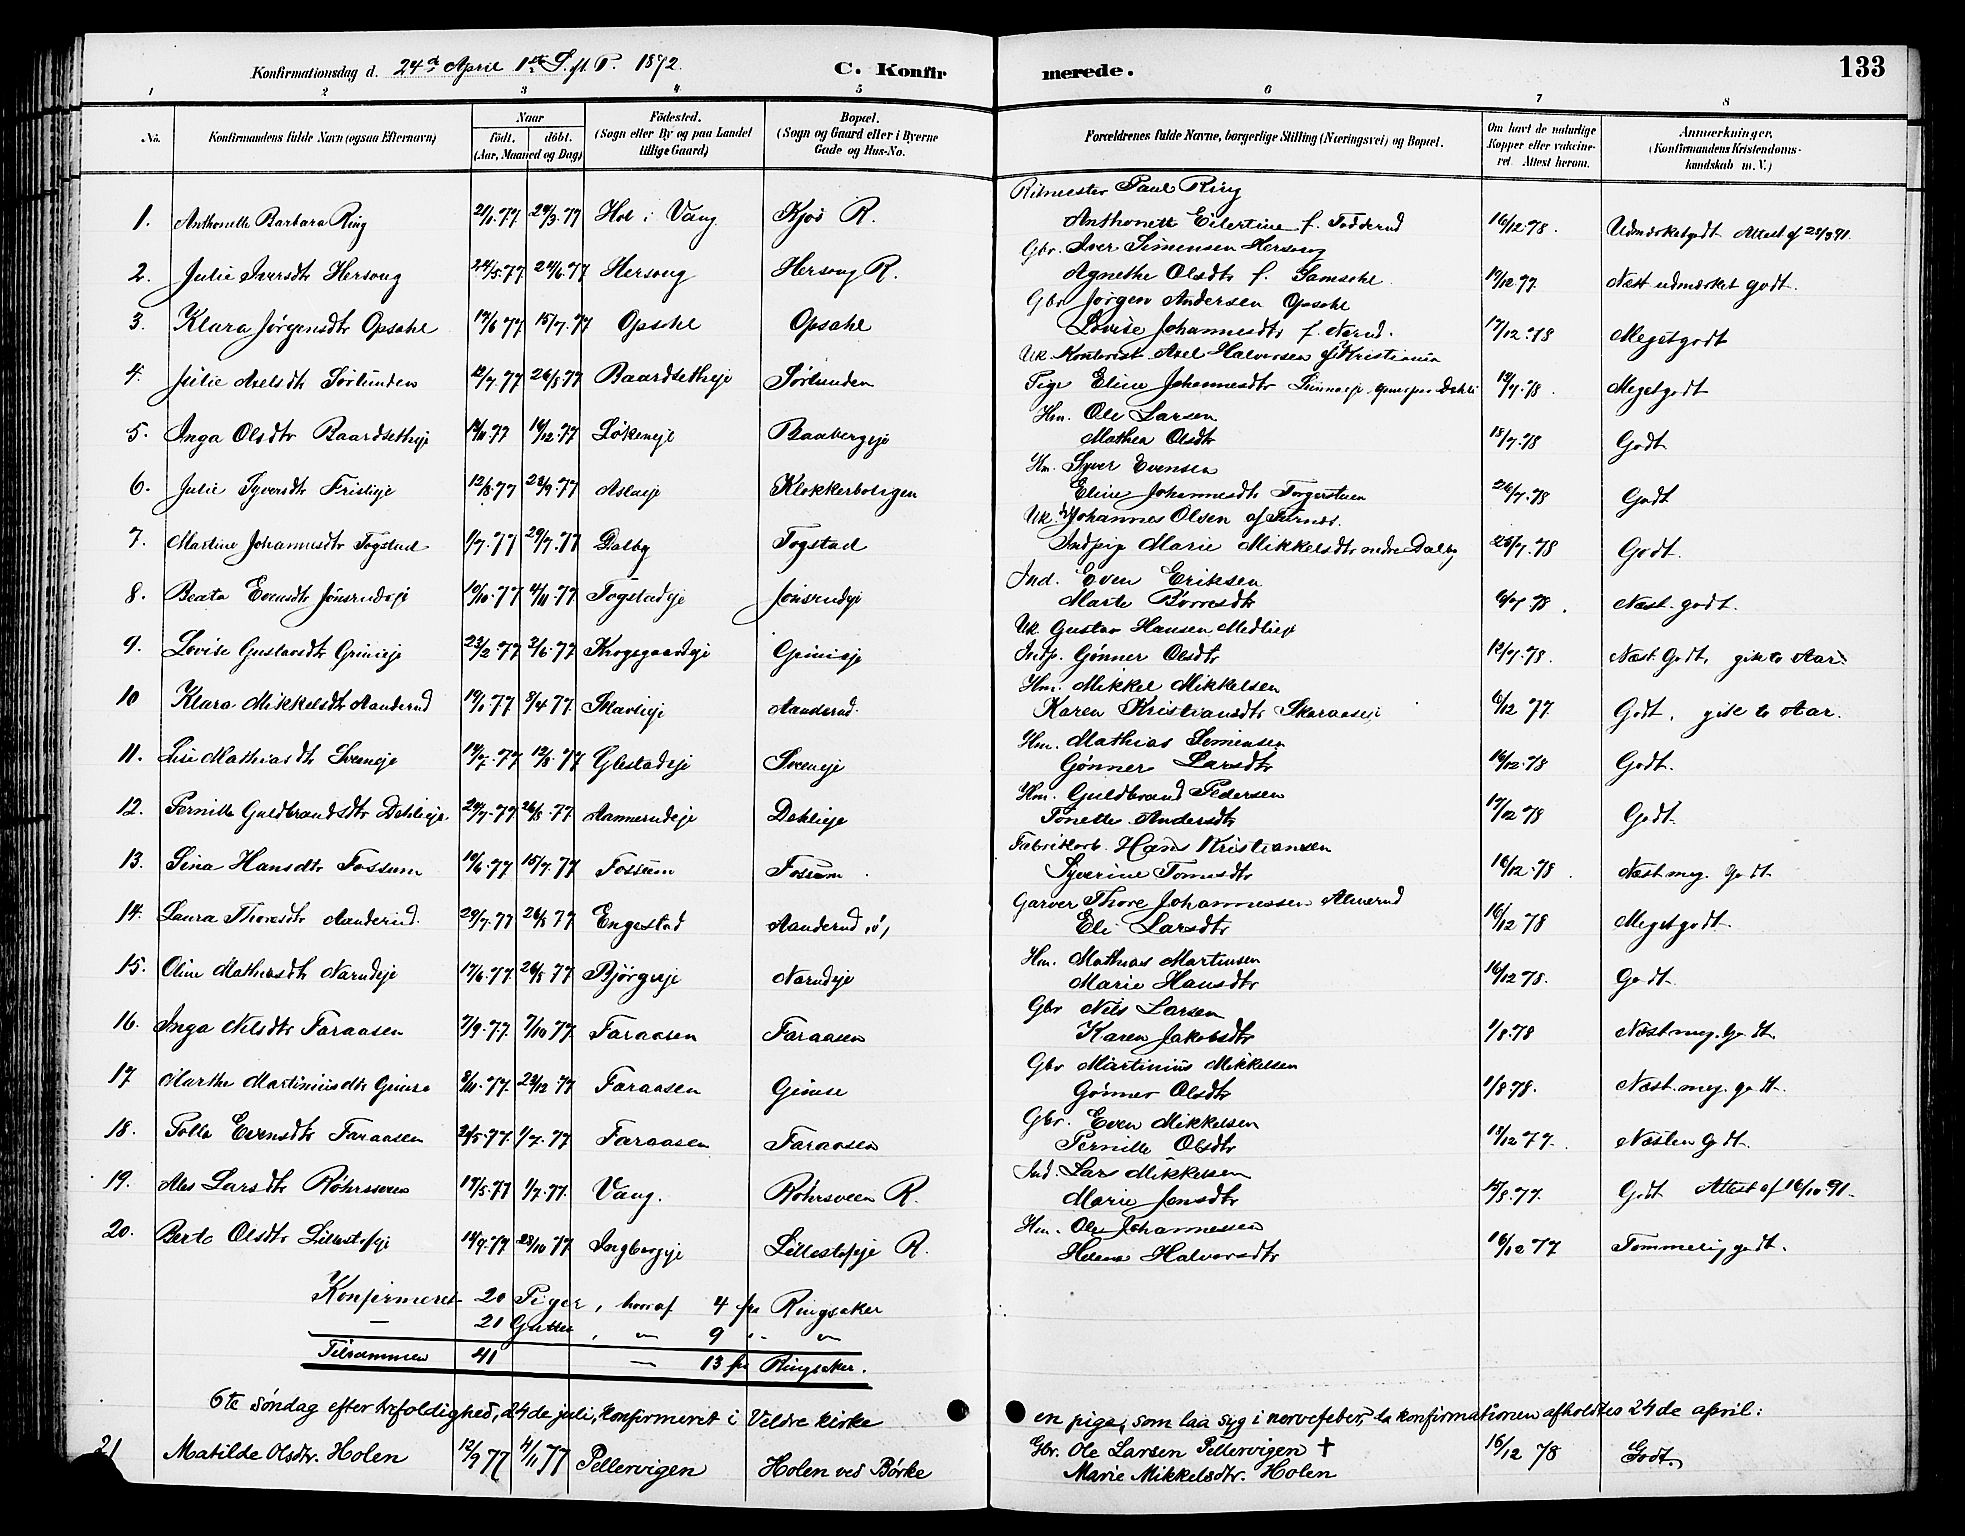 Konfirmationsdag d. 24de April 1ste S. ft. P. 1892. C. Konfirmerede. 133
1 2 3 4 5 6 7 8
No. Konfirmandens fulde Navn (ogsaa Efternavn) Naar født. døbt. (Aar, Maaned og Dag) Fødested. (Sogn eller By og paa Landet tillige Gaard) Bopæl. (Sogn og Gaard eller i Byerne Gade og Hus-No. Forældrenes fulde Navne, borgerlige Stilling (Næringsvei) og Bopæl. Om havt de naturlige Kopper eller vaccineret. Attest herom. Anmærkninger. (Konfirmandens Kristendomskundskab m. V.)
Ritmester Paul Ring
1. Anthonette Barbara Ring 21/1.77 24/3.77 Hol i Vang Kjos R. Anthonette Eilertine f. Fodderud 16/12.78. Udmærketgodt Attest af 24/9 91.
Gbr. Iver Simensen Hersoug
2. Julie Iversdtr Hersoug 24/5.77 24/6.77 Hersoug Hersoug R. Agnethe Olsdtr f. Samsehl 17/12 77 Næst udmærket godt.
Gbr Jørgen Andersen Opsahl
3. Klara Jørgensdtr Opsahl 17/6 77 15/7.77 Opsahl Opsahl Lovise Johannesdtr f. Narud. 17/12.78 Megetgodt
Uk Kontorist Axel Halvorsen af Kristiania
4. Julie Axelsdtr Sørlunden 12/7.77 26/8 77 Baardsetheje Sørlunden Pige Eline Johannesdtr 19/7.78. Megetgodt
Hm. Ole Larsen
5. Inga Olsdtr Baardsetheje 14/11.77 16/12.77 Løkeneje Baabergeje Mathea Olsdtr 18/7.78 Godt
Hm. Syver Evensen
6. Julie Syversdtr Frislieje 12/8.77 23/9.77 Aslaeje Klokkerboligen Eline Johannesdtr Torgerstuen 26/7.78 Godt
Uk. Johannes Olsen af Furnæs.
7. Martine Johannesdtr Togstad 1/7.77 29/7.77 Dalby Togstad Indpige Marie Mikkelsdtr nedre Dalby 25/7.78 Godt.
Ind. Even Eriksen
8. Beata Evensdtr Jønsrudeje 10/10.77 4/11.77 Togstadeje Jønsrudeje Marte Børresdtr 6/7.78. Næst. godt.
Uk Gustav Hansen Medlieje
9. Lovise Gustavsdtr Grinieje 23/2.77 3/6.77 Krogsgaardeje Grinieje Indp. Gønner Olsdtr 12/7.78. Næst. Godt, gik to Aar.
Hm. Mikkel Mikkelsen
10 Klara Mikkelsdtr Aanderud 19/1 77 8/4 77 Skavlieje Aanderud. Karen Kristiansdtr Skaraaseje 6/12 77 Godt, gik to Aar.
Hm. Mathias Simensen
11. Lise Mathiasdtr Sveeneje 19/7.77 12/8.77 Glestadeje Sveeneje Gønner Larsdtr 16/12.78 Godt.
Hm. Guldbrand Pedersen
12. Pernille Guldbrandsdtr Dehlieje 24/7.77 26/8.77 Aannerudeje Dehlieje Tonette Andersdtr 17/12 78 Godt.
Fabrikarb. Hans Kristiansen
13. Sina Hansdtr Fossum 10/6.77 15/7 77 Fossum Fossum. Syverine Tomasdtr 16/12.78. Næst meg. Godt.
Garver Thore Johannessen Alnerud
14. Laura Thoresdtr Aanderud. 29/7.77 26/8 77 Engestad Aanderud Eli Larsdtr 16/12 78 Megetgodt.
Hm. Mathias Martinsen
15. Oline Mathiasdtr Narudeje 17/6.77 26/8 77 Bjørgeeje Narudeje Marie Hansdtr 16/12 78. Godt.
Gbr Nils Larsen
16. Inga Nilsdtr Faraasen 7/9.77. 7/10 77 Faraasen Faraasen Karen Jakobsdtr 1/8.78 Næst meg. Godt.
Gbr Martinius Mikkelsen
17 Marthe Martiniusdtr Grimse 8/11.77. 23/12 77 Faraasen Grimse Gønner Olsdtr 1/8.78. Næst. meg. godt.
Gbr. Even Mikkelsen
18. Polla Evensdtr Faraasen 21/5.77. 1/7.77 Faraasen Faraasen Pernille Olsdtr 13/12 77. Næsten Godt.
Ind. Lars Mikkelsen
19. Alis Larsdtr Røhrsveen 17/5.77 1/7.77. Vang. Røhrsveen R. Marie Jensdtr 12/8.77. Godt Attest af 16/10 91.
Hm. Ole Johannessen
20. Berte Olsdtr Lillestøfeje 14/9.77 28/10 77 Ingbergeje Lillestøfeje R. Helene Halvorsdtr 16/12 77 Temmelig godt.
Konfirmeret 20 Piger, hvoraf 4 fra Ringsaker
— 21 Gutter, " 9 " "
Tilsammen 41 — 13 fra Ringsaker.
6te søndag efter trefoldighed, 24de juli, konfirmeret i Veldre kirke en pige, som laa syg i nervefeber, da konfirmationen afholdtes 24de april:
21 Matilde Olsdtr. Holen 12/9 77 4/11 77 Pellervigen Holen ved Børke Gbr. Ole Larsen Pellervigen † 16/12 78 Godt.
Marie Mikkelsdtr. Holen